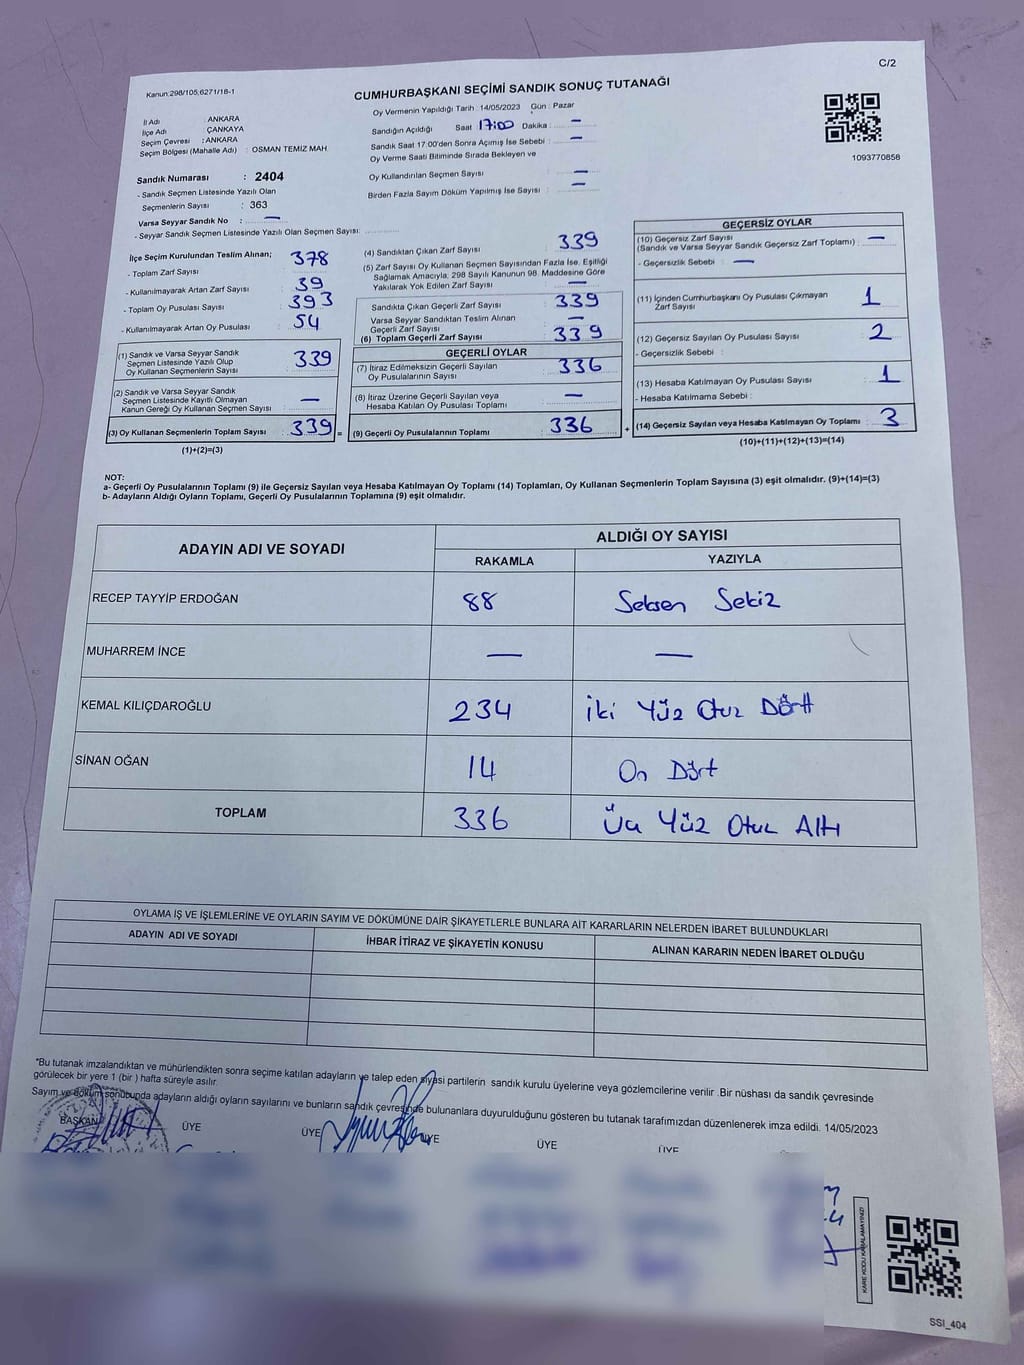 C/2
Kanun:298/105,6271/18-1
CUMHURBAŞKANI SEÇİMİ SANDIK SONUÇ TUTANAĞI
Oy Vermenin Yapıldığı Tarih : 14/05/2023 Gün : Pazar
İl Adı : ANKARA
İlçe Adı : ÇANKAYA
Seçim Çevresi : ANKARA
Seçim Bölgesi (Mahalle Adı) : OSMAN TEMİZ MAH
Sandığın Açıldığı Saat 17:00 Dakika : —
Sandık Saat 17:00'den Sonra Açılmış İse Sebebi : —
Oy Verme Saati Bitiminde Sırada Bekleyen ve
Oy Kullandırılan Seçmen Sayısı : —
Birden Fazla Sayım Döküm Yapılmış İse Sayısı : —
1093770858
Sandık Numarası : 2404
- Sandık Seçmen Listesinde Yazılı Olan
Seçmenlerin Sayısı : 363
Varsa Seyyar Sandık No : —
- Seyyar Sandık Seçmen Listesinde Yazılı Olan Seçmen Sayısı:
İlçe Seçim Kurulundan Teslim Alınan;
- Toplam Zarf Sayısı 378
- Kullanılmayarak Artan Zarf Sayısı 39
- Toplam Oy Pusulası Sayısı 393
- Kullanılmayarak Artan Oy Pusulası 54
(1) Sandık ve Varsa Seyyar Sandık
Seçmen Listesinde Yazılı Olup
Oy Kullanan Seçmenlerin Sayısı 339
(2) Sandık ve Varsa Seyyar Sandık
Seçmen Listesinde Kayıtlı Olmayan
Kanun Gereği Oy Kullanan Seçmen Sayısı —
(3) Oy Kullanan Seçmenlerin Toplam Sayısı 339 =
(1)+(2)=(3)
(4) Sandıktan Çıkan Zarf Sayısı : 339
(5) Zarf Sayısı Oy Kullanan Seçmen Sayısından Fazla İse, Eşitliği
Sağlamak Amacıyla; 298 Sayılı Kanunun 98. Maddesine Göre
Yakılarak Yok Edilen Zarf Sayısı : —
Sandıkta Çıkan Geçerli Zarf Sayısı : 339
Varsa Seyyar Sandıktan Teslim Alınan
Geçerli Zarf Sayısı : —
(6) Toplam Geçerli Zarf Sayısı : 339
GEÇERLİ OYLAR
(7) İtiraz Edilmeksizin Geçerli Sayılan
Oy Pusulalarının Sayısı : 336
(8) İtiraz Üzerine Geçerli Sayılan veya
Hesaba Katılan Oy Pusulası Toplamı : —
(9) Geçerli Oy Pusulalarının Toplamı : 336 +
GEÇERSİZ OYLAR
(10) Geçersiz Zarf Sayısı
(Sandık ve Varsa Seyyar Sandık Geçersiz Zarf Toplamı) : —
- Geçersizlik Sebebi : —
(11) İçinden Cumhurbaşkanı Oy Pusulası Çıkmayan
Zarf Sayısı : 1
(12) Geçersiz Sayılan Oy Pusulası Sayısı : 2
- Geçersizlik Sebebi :
(13) Hesaba Katılmayan Oy Pusulası Sayısı : 1
- Hesaba Katılmama Sebebi :
(14) Geçersiz Sayılan veya Hesaba Katılmayan Oy Toplamı : 3
(10)+(11)+(12)+(13)=(14)
NOT:
a- Geçerli Oy Pusulalarının Toplamı (9) ile Geçersiz Sayılan veya Hesaba Katılmayan Oy Toplamı (14) Toplamları, Oy Kullanan Seçmenlerin Toplam Sayısına (3) eşit olmalıdır. (9)+(14)=(3)
b- Adayların Aldığı Oyların Toplamı, Geçerli Oy Pusulalarının Toplamına (9) eşit olmalıdır.
ADAYIN ADI VE SOYADI ALDIĞI OY SAYISI
RAKAMLA YAZIYLA
RECEP TAYYİP ERDOĞAN 88 Seksen Sekiz
MUHARREM İNCE — —
KEMAL KILIÇDAROĞLU 234 İki Yüz Otuz Dört
SİNAN OĞAN 14 On Dört
TOPLAM 336 Üç Yüz Otuz Altı
OYLAMA İŞ VE İŞLEMLERİNE VE OYLARIN SAYIM VE DÖKÜMÜNE DAİR ŞİKAYETLERLE BUNLARA AİT KARARLARIN NELERDEN İBARET BULUNDUKLARI
ADAYIN ADI VE SOYADI İHBAR İTİRAZ VE ŞİKAYETİN KONUSU ALINAN KARARIN NEDEN İBARET OLDUĞU
*Bu tutanak imzalandıktan ve mühürlendikten sonra seçime katılan adayların ve talep eden siyasi partilerin sandık kurulu üyelerine veya gözlemcilerine verilir .Bir nüshası da sandık çevresinde
görülecek bir yere 1 (bir ) hafta süreyle asılır.
Sayım ve döküm sonucunda adayların aldığı oyların sayılarını ve bunların sandık çevresinde bulunanlara duyurulduğunu gösteren bu tutanak tarafımızdan düzenlenerek imza edildi. 14/05/2023
BAŞKAN ÜYE ÜYE ÜYE ÜYE ÜYE
KARE KODU KARALAMAYINIZ!
SSI_404